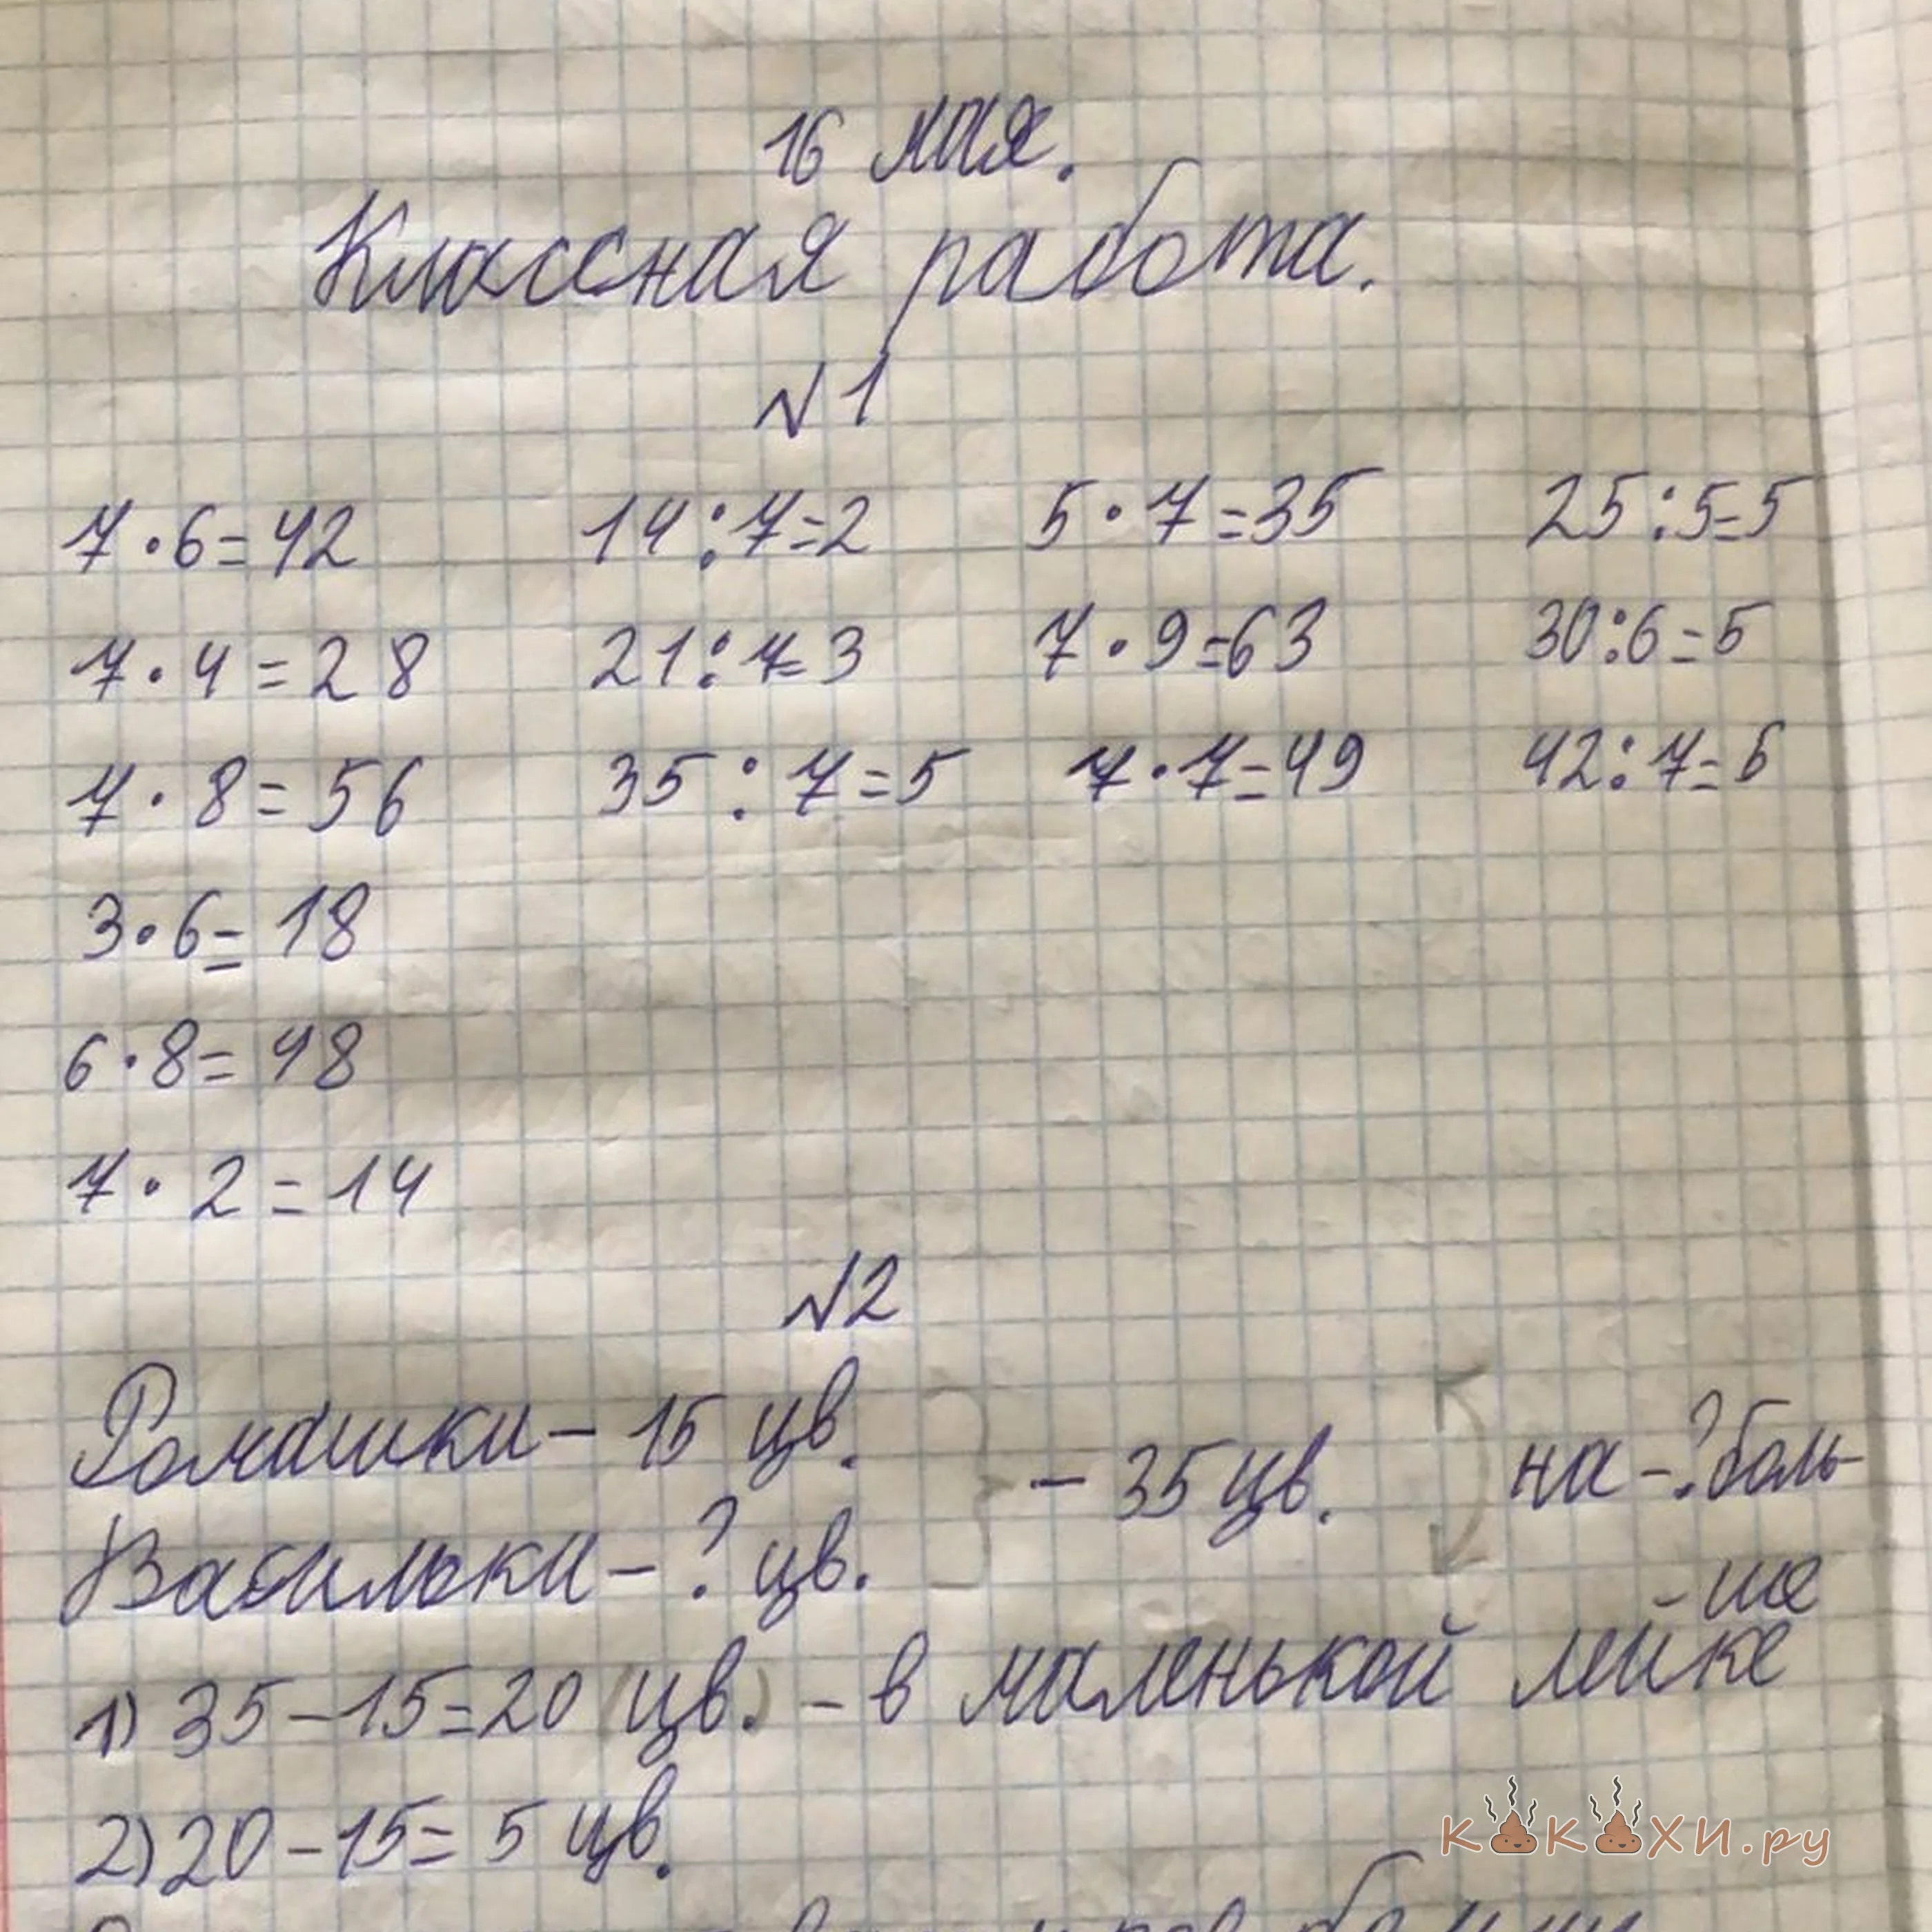 16 мая.
Классная работа.
№1
7·6=42 14:7=2 5·7=35 25:5=5
7·4=28 21:7=3 7·9=63 30:6=5
7·8=56 35:7=5 7·7=49 42:7=6
3·6=18
6·8=48
7·2=14
№2
Ромашки – 15 цв. – 35 цв. на -? боль-
Васильки – ? цв. ше
1) 35-15=20 (цв.) – в маленькой лейке
2) 20-15=5 цв.
какахи.ру